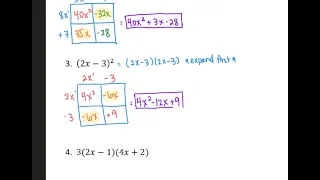 8x 40x² -32x
+7 35x -28 = 40x² + 3x - 28
3. (2x − 3)² = (2x-3)(2x-3) *expand first*
2x -3
2x 4x² -6x
-3 -6x +9 = 4x² - 12x + 9
4. 3(2x − 1)(4x + 2)